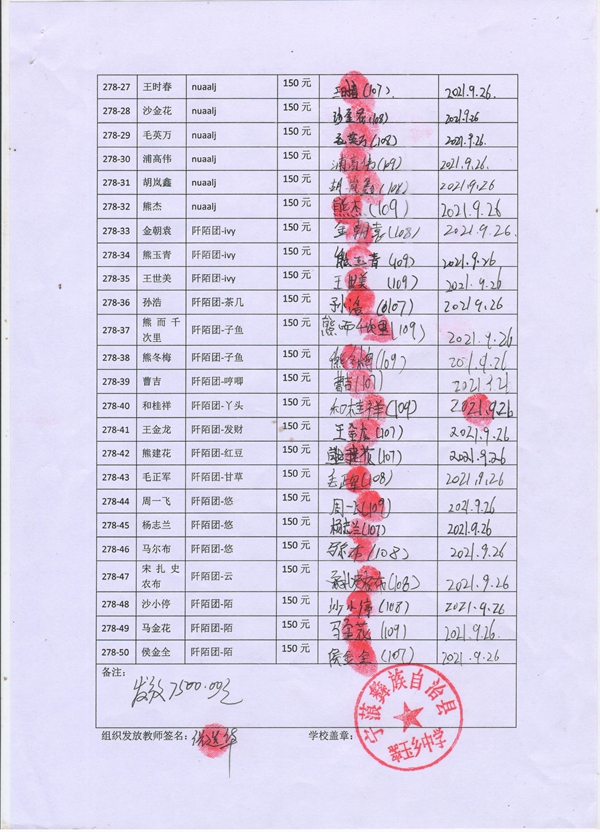 278-27 王时春 nuaalj 150 元 王时春(107) 2021.9.26.
278-28 沙金花 nuaalj 150 元 沙金花(108) 2021.9.26
278-29 毛英万 nuaalj 150 元 毛英万(108) 2021.9.26
278-30 浦高伟 nuaalj 150 元 浦高伟(109) 2021.9.26
278-31 胡岚鑫 nuaalj 150 元 胡岚鑫(108) 2021.9.26
278-32 熊杰 nuaalj 150 元 熊杰(109) 2021.9.26
278-33 金朝袁 阡陌团-ivy 150 元 (108) 2021.9.26.
278-34 熊玉青 阡陌团-ivy 150 元 熊玉青(109) 2021.9.26
278-35 王世美 阡陌团-ivy 150 元 王世美(109) 2021.9.26
278-36 孙浩 阡陌团-茶几 150 元 孙浩(0107) 2021.9.26
278-37 熊而千次里 阡陌团-子鱼 150 元 熊而千次里(109) 2021.9.26
278-38 熊冬梅 阡陌团-子鱼 150 元 熊冬梅(109) 2021.9.26
278-39 曹吉 阡陌团-哼唧 150 元 曹吉(107)
278-40 和桂祥 阡陌团-丫头 150 元 和桂祥(109) 2021.9.26
278-41 王金龙 阡陌团-发财 150 元 王金龙(107) 2021.9.26
278-42 熊建花 阡陌团-红豆 150 元 熊建花(107) 2021.9.26
278-43 毛正军 阡陌团-甘草 150 元 毛正军(108) 2021.9.26
278-44 周一飞 阡陌团-悠 150 元 周一飞(109) 2021.9.26
278-45 杨志兰 阡陌团-悠 150 元 杨志兰(107) 2021.9.26
278-46 马尔布 阡陌团-悠 150 元 马尔布(108) 2021.9.26
278-47 宋扎史农布 阡陌团-云 150 元 宋扎史农布(108) 2021.9.26
278-48 沙小停 阡陌团-陌 150 元 沙小停(108) 2021.9.26
278-49 马金花 阡陌团-陌 150 元 马金花(109) 2021.9.26.
278-50 侯金全 阡陌团-陌 150 元 侯金全(107) 2021.9.26
备注：
发放7500.00元
组织发放教师签名： 学校盖章：
宁蒗彝族自治县
翠玉乡中学